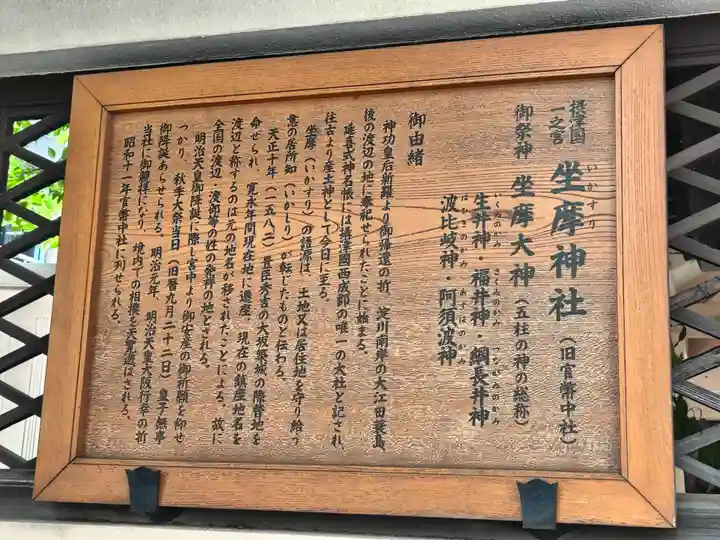 摂津国
一之宮
坐摩神社（旧官幣中社）
いかすり
御祭神 坐摩大神（五柱の神の総称）
生井神・福井神・綱長井神
いくゐのかみ さくゐのかみ つながゐのかみ
波比岐神 阿須波神
はひきのかみ あすはのかみ
御由緒
神功皇后新羅より御帰還の折、淀川南岸の大江田蓑島、
後の渡辺の地に奉祀せられたことに始まる。
延喜式神名帳には摂津国西成郡の唯一の大社と記され、
往古より産土神として今日に至る。
坐摩（いかすり）の語源は、土地又は居住地を守り給う
意の居所知（いかしり）が転じたものと伝わる。
天正十年（一五八二）豊臣秀吉の大坂築城の際替地を
命ぜられ、寛永年間現在地に遷座、現在の鎮座地名を
渡辺と称するのは元の地名が移されたことによる。故に
全国の渡辺・渡部等の姓の発祥の地とされる。
明治天皇御降誕に際し宮中より御安産の御祈願を仰せ
つかり、秋季大祭当日（旧暦九月二十二日）皇子無事
御降誕あらせられる。明治元年、明治天皇大阪行幸の折
当社に御親拝になり、境内での相撲を天覧遊ばされる。
昭和十一年官幣中社に列せられる。